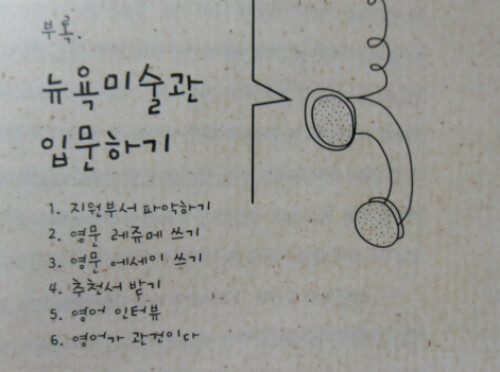 부록.
뉴욕미술관
입문하기
1. 지원부서 파악하기
2. 영문 레쥬메 쓰기
3. 영문 에세이 쓰기
4. 추천서 받기
5. 영어 인터뷰
6. 영어가 관건이다